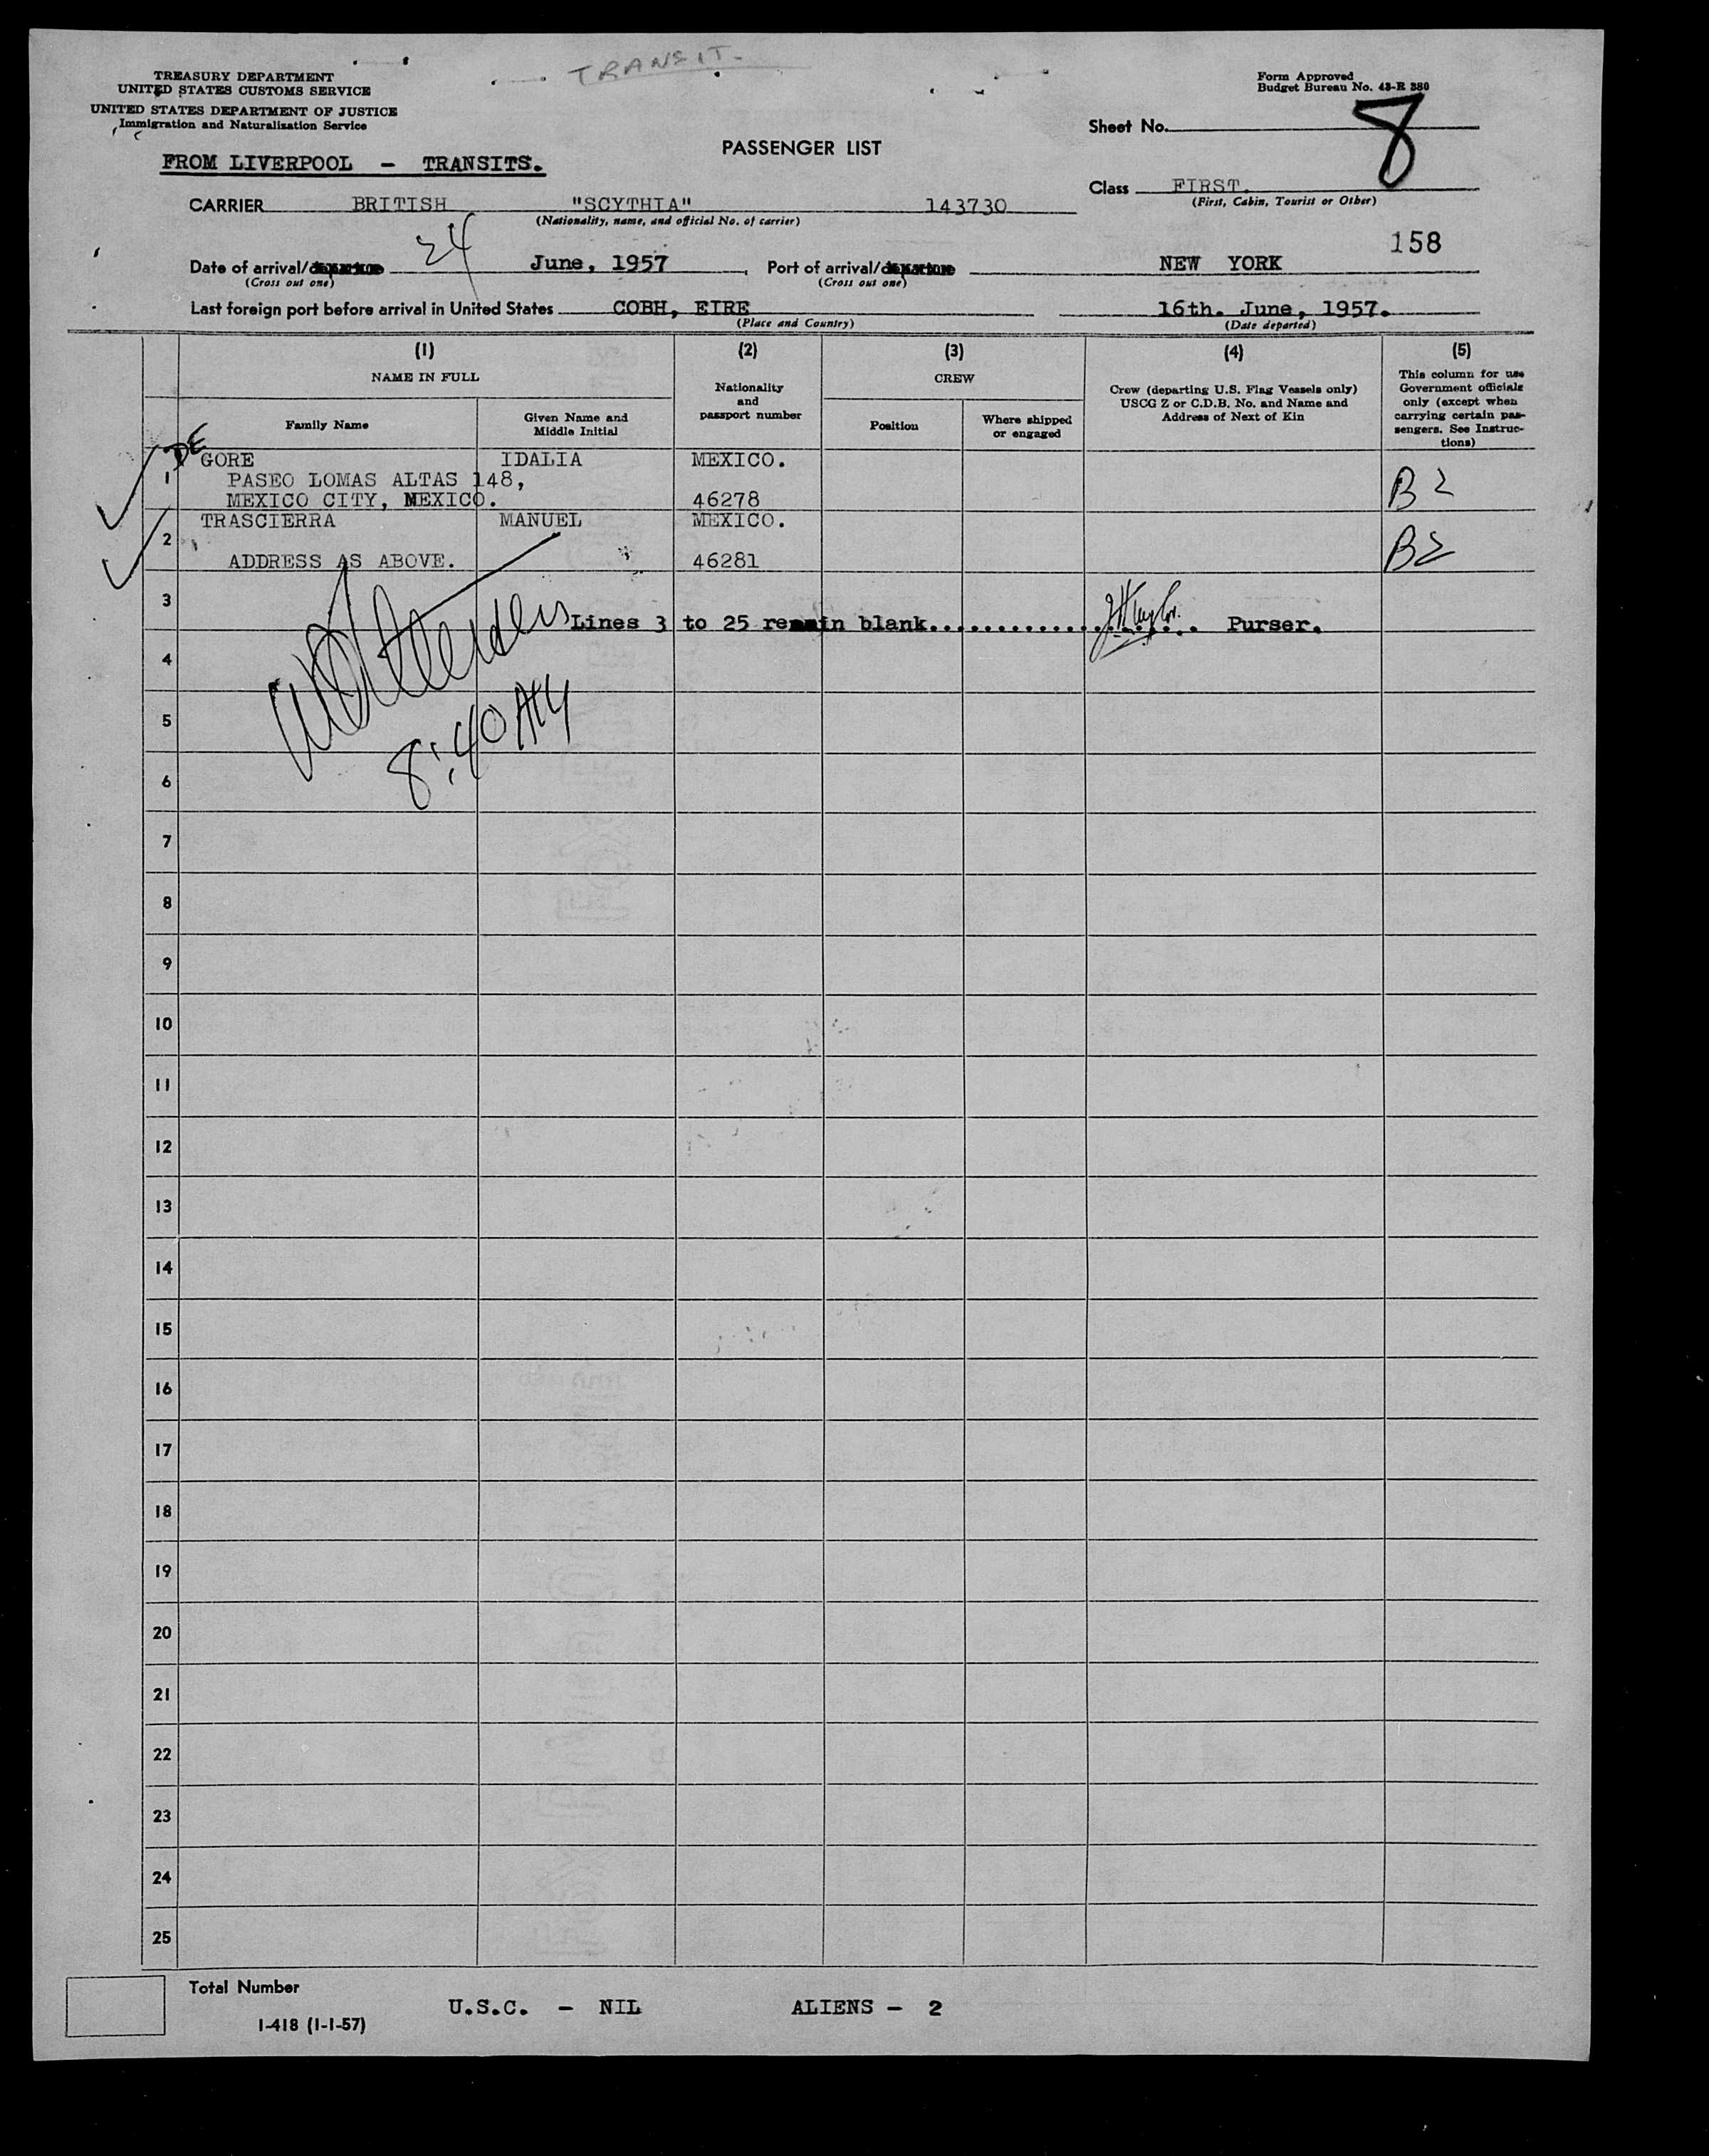 TRANSIT.
TREASURY DEPARTMENT
UNITED STATES CUSTOMS SERVICE
UNITED STATES DEPARTMENT OF JUSTICE
Immigration and Naturalization Service
Form Approved
Budget Bureau No. 43-R 380
Sheet No. 8
PASSENGER LIST
FROM LIVERPOOL - TRANSITS.
Class FIRST.
(First, Cabin, Tourist or Other)
CARRIER BRITISH "SCYTHIA" 143730
(Nationality, name, and official No. of carrier)
158
Date of arrival/departure 24 June, 1957, Port of arrival/departure NEW YORK
(Cross out one) (Cross out one)
Last foreign port before arrival in United States COBH, EIRE 16th. June, 1957.
(Place and Country) (Date departed)
(1) (2) (3) (4) (5)
NAME IN FULL
Family Name
Given Name and Middle Initial
Nationality and passport number
CREW
Position
Where shipped or engaged
Crew (departing U.S. Flag Vessels only)
USCG Z or C.D.B. No. and Name and
Address of Next of Kin
This column for use
Government officials
only (except when
carrying certain pas-
sengers. See Instruc-
tions)
DE
GORE IDALIA MEXICO.
1 PASEO LOMAS ALTAS 148, B2
MEXICO CITY, MEXICO. 46278
TRASCIERRA MANUEL MEXICO.
2 B2
ADDRESS AS ABOVE. 46281
3
Lines 3 to 25 remain blank. Purser.
4
5
8:40 AM
6
7
8
9
10
11
12
13
14
15
16
17
18
19
20
21
22
23
24
25
Total Number
U.S.C. - NIL ALIENS - 2
I-418 (1-1-57)